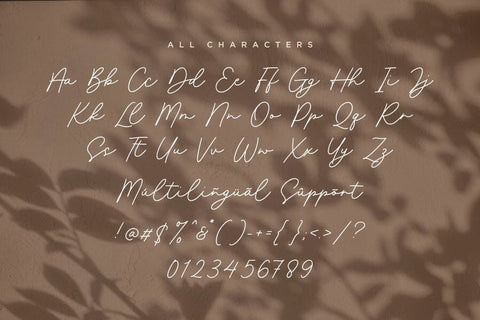 ALL CHARACTERS
Aa Bb Cc Dd Ee Ff Gg Hh Ii Jj
Kk Ll Mm Nn Oo Pp Qq Rr
Ss Tt Uu Vv Ww Xx Yy Zz
Múltilingüãl Sûppört
!@#$%^&*()-+={};:<.>/?
0123456789